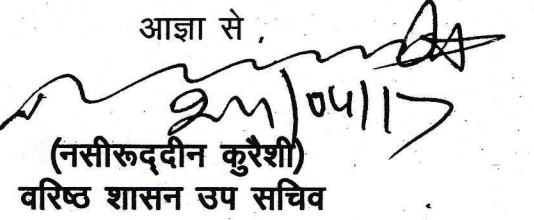 आज्ञा से ,
(नसीरूद्दीन कुरैशी)
वरिष्ठ शासन उप सचिव